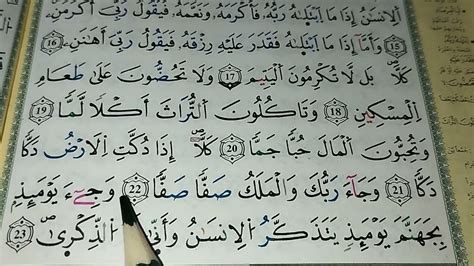 ٱلْإِنسَٰنُ إِذَا مَا ٱبْتَلَىٰهُ رَبُّهُۥ فَأَكْرَمَهُۥ وَنَعَّمَهُۥ فَيَقُولُ رَبِّىٓ أَكْرَمَنِ
١٥ وَأَمَّآ إِذَا مَا ٱبْتَلَىٰهُ فَقَدَرَ عَلَيْهِ رِزْقَهُۥ فَيَقُولُ رَبِّىٓ أَهَٰنَنِ ١٦
كَلَّا ۖ بَل لَّا تُكْرِمُونَ ٱلْيَتِيمَ ١٧ وَلَا تَحُضُّونَ عَلَىٰ طَعَامِ
ٱلْمِسْكِينِ ١٨ وَتَأْكُلُونَ ٱلتُّرَاثَ أَكْلًا لَّمًّا ١٩
وَتُحِبُّونَ ٱلْمَالَ حُبًّا جَمًّا ٢٠ كَلَّآ ۖ إِذَا دُكَّتِ ٱلْأَرْضُ دَكًّا
دَكًّا ٢١ وَجَآءَ رَبُّكَ وَٱلْمَلَكُ صَفًّا صَفًّا ٢٢ وَجِا۟ىٓءَ يَوْمَئِذٍۭ
بِجَهَنَّمَ ۚ يَوْمَئِذٍ يَتَذَكَّرُ ٱلْإِنسَٰنُ وَأَنَّىٰ لَهُ ٱلذِّكْرَىٰ ٢٣